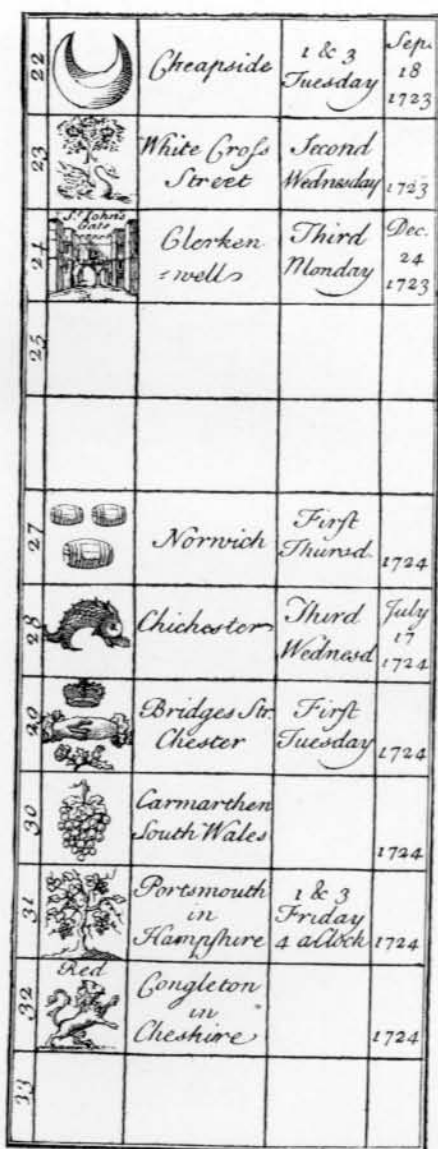 22
Cheapside
1 & 3
Tuesday
Sep.
18
1723
23
White Croſs
Street
Second
Wednesday
1723
24
St. John's
Gate
Clerken
=well
Third
Monday
Dec.
24
1723
25
27
Norwich
Firſt
Thursd
1724
28
Chichester
Third
Wednesd
July
17
1724
29
Bridges Str.
Chester
Firſt
Tuesday
1724
30
Carmarthen
South Wales
1724
31
Portsmouth
in
Hampſhire
1 & 3
Friday
4 a Clock
1724
32
Red
Congleton
in
Cheshire
1724
33